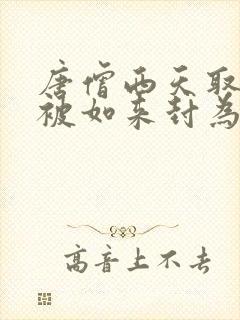 唐僧西天取
被如来封為
高音上不去